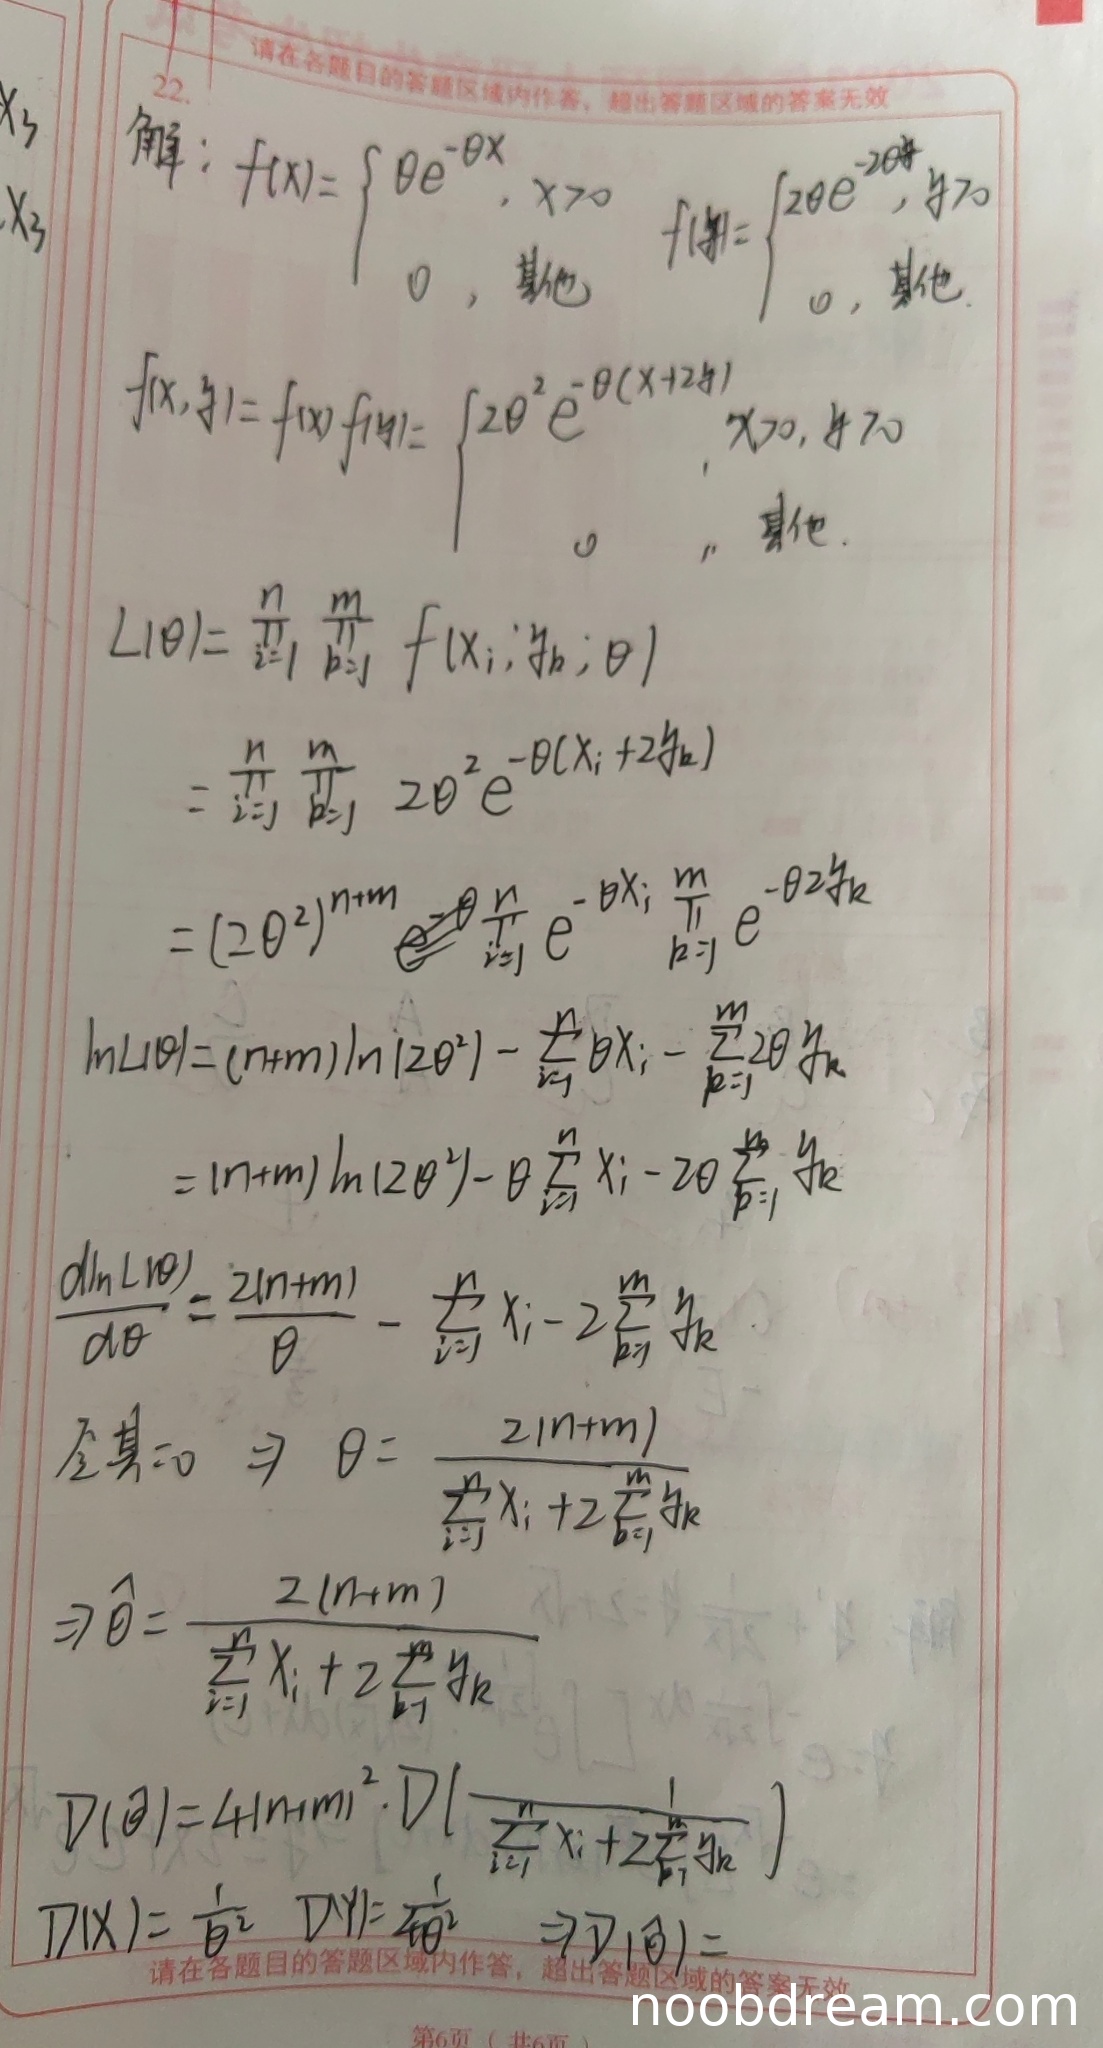 请在各题目的答题区域内作答，超出答题区域的答案无效
22.
x₃
x₃
解: f(x)={θe^{-θx}, x>0
0, 其他
f(y)={2θe^{-2θy}, y>0
0, 其他.
f(x,y)=f(x)f(y)={2θ²e^{-θ(x+2y)}, x>0, y>0
0, 其他.
L(θ)=∏_{i=1}^{n} ∏_{k=1}^{m} f(x_i; y_k; θ)
=∏_{i=1}^{n} ∏_{k=1}^{m} 2θ²e^{-θ(x_i+2y_k)}
=(2θ²)^{n+m} ∏_{i=1}^{n} e^{-θx_i} ∏_{k=1}^{m} e^{-θ2y_k}
lnL(θ)=(n+m)ln(2θ²)-∑_{i=1}^{n}θx_i-∑_{k=1}^{m}2θy_k
=(n+m)ln(2θ²)-θ∑_{i=1}^{n}x_i-2θ∑_{k=1}^{m}y_k
dlnL(θ)/dθ=2(n+m)/θ-∑_{i=1}^{n}x_i-2∑_{k=1}^{m}y_k
令其=0 ⇒ θ=2(n+m)/(∑_{i=1}^{n}x_i+2∑_{k=1}^{m}y_k)
⇒θ̂=2(n+m)/(∑_{i=1}^{n}x_i+2∑_{k=1}^{m}y_k)
D(θ̂)=4(n+m)²·D(1/(∑_{i=1}^{n}x_i+2∑_{k=1}^{m}y_k))
D(X)=1/θ² D(Y)=1/4θ² ⇒D(θ̂)=
请在各题目的答题区域内作答，超出答题区域的答案无效
noobdream.com
第6页（共6页）